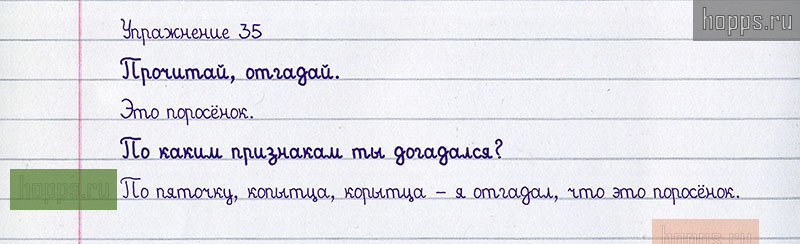 hopps.ru
Упражнение 35
Прочитай, отгадай.
Это поросёнок.
По каким признакам ты догадался?
hopps.ru
По пяточку, копытца, корытца – я отгадал, что это поросёнок.
hopps.ru